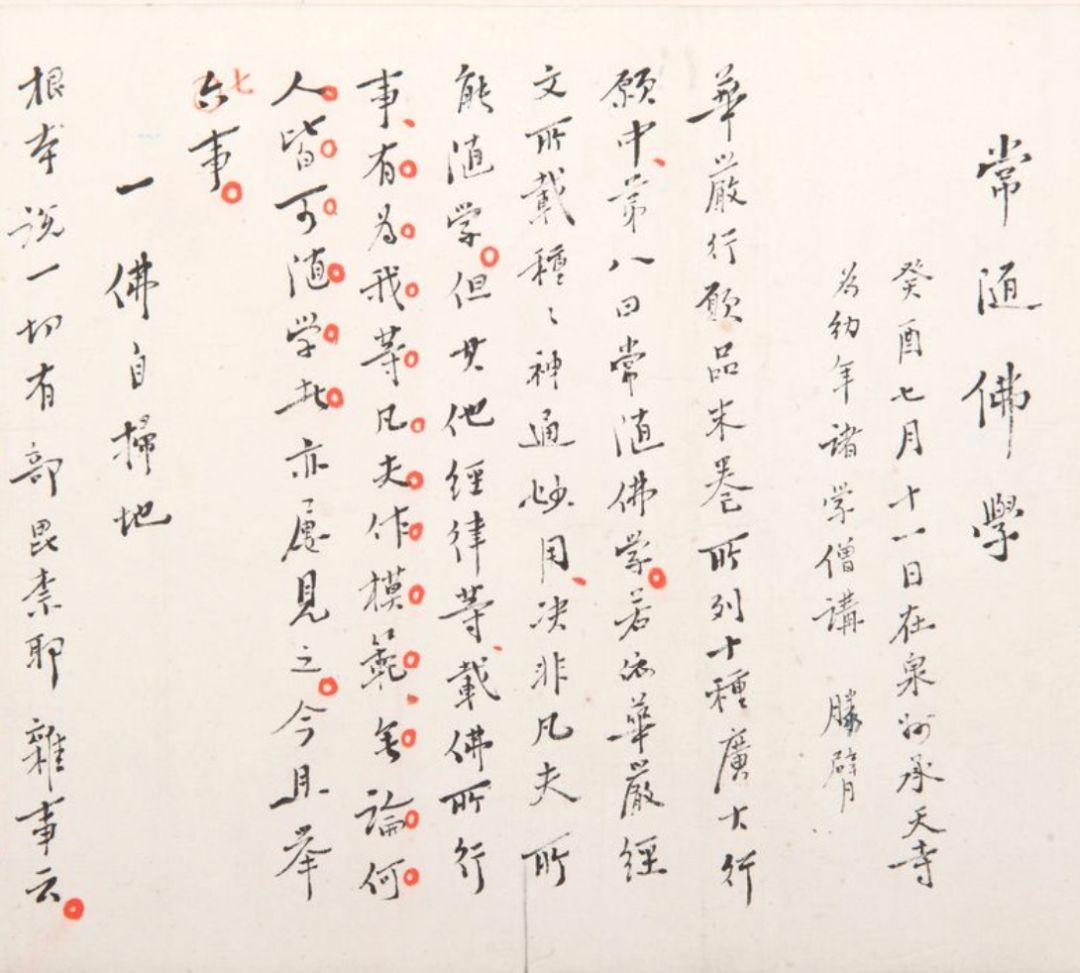 常随佛學
癸酉七月十一日在泉州承天寺
为幼年諸学僧講 勝臂
華嚴行願品末卷所列十種廣大行
願中、第八曰常随佛学。若依華嚴經
文所載種〻神通妙用、决非凡夫所
能随学。但其他經律等、載佛所行
事、有为我等凡夫作模範、無論何
人皆可随学者、亦屢見之。今且举
六七事。
一 佛自掃地
根本説一切有部毘奈耶 雜事云。